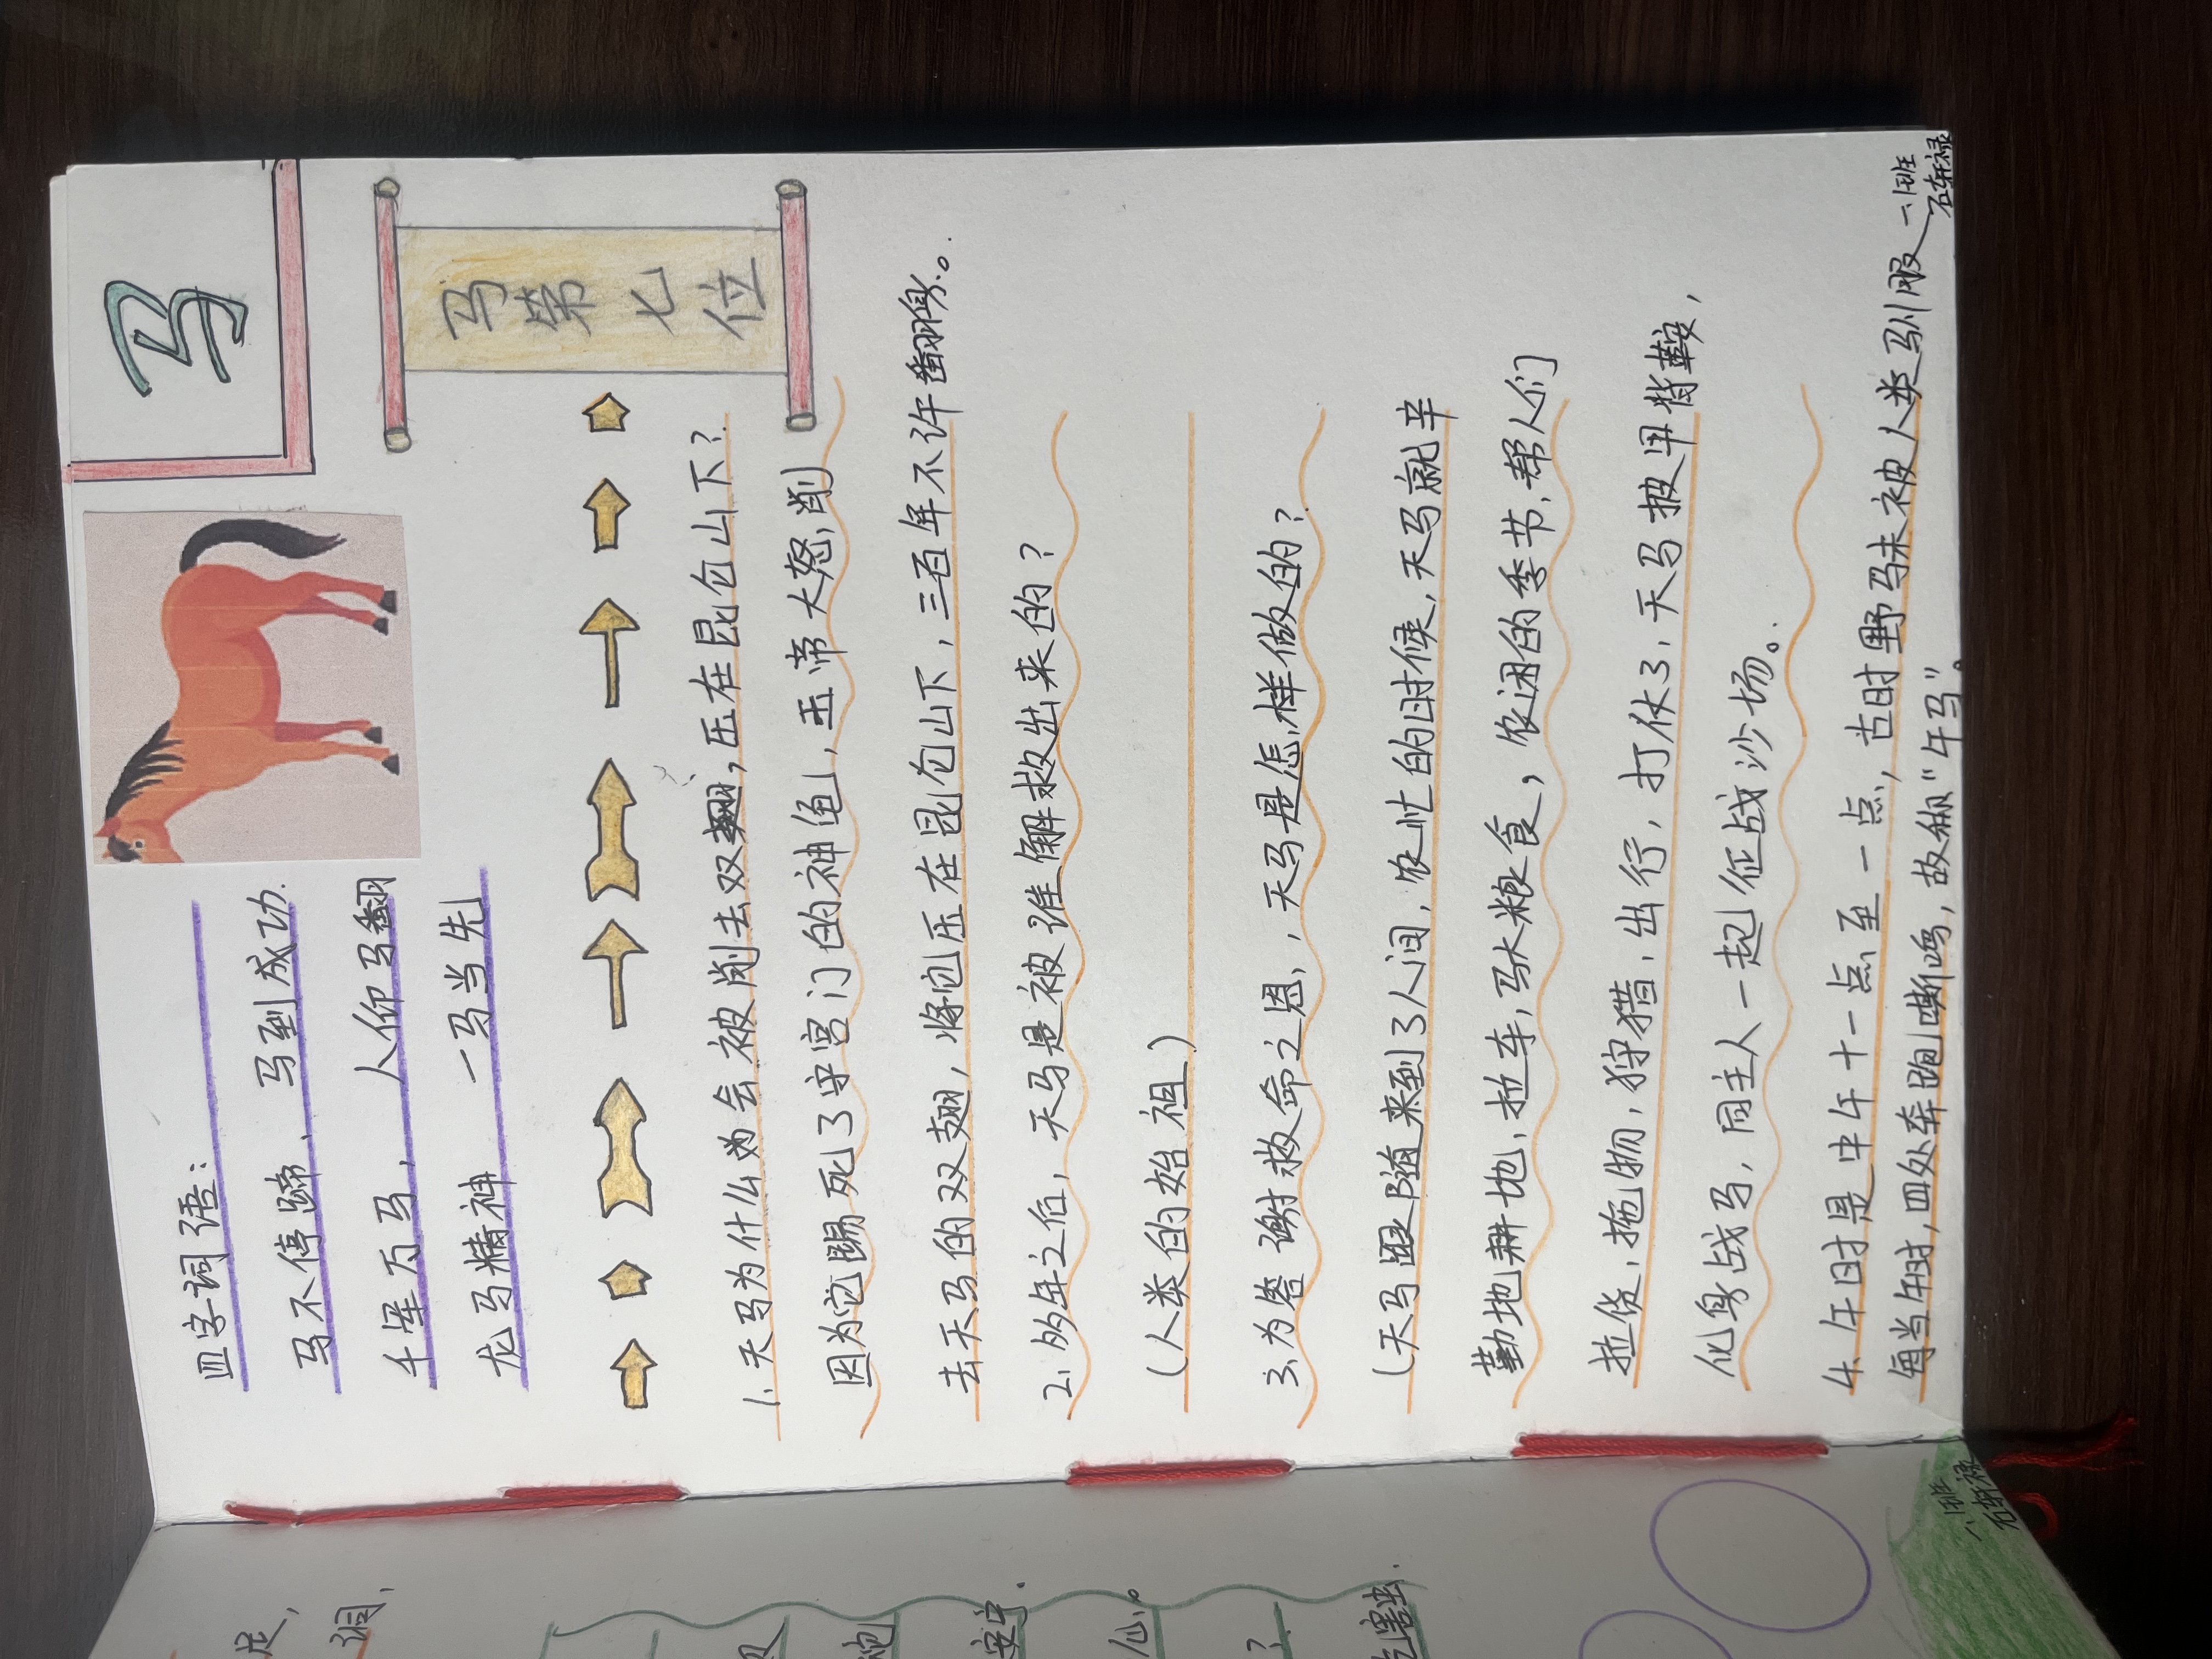 马
四字词语：
马不停蹄、马到成功.
千军万马、人仰马翻
龙马精神 一马当先
马第七位
1、天马为什么为会被削去双翅，压在昆仑山下？
因为它踢死了守宫门的神龟，玉帝大怒，削
去天马的双翅，将它压在昆仑山下，三百年不许翻身。
2、多年之后，天马是被谁解救出来的？
（人类的始祖）
3、为答谢救命之恩，天马是怎样做的？
（天马跟随来到了人间，农忙的时候，天马就辛
勤地耕地，拉车，马大粮食，农闲的季节，帮人们
拉货，拖物，狩猎，出行，打仗了，天马披甲背鞍，
化身战马，同主人一起征战沙场。
4、午时是中午十一点至一点，古时野马未被人类驯服
每当午时，四处奔跑嘶鸣，故称“午马”。
六1班
石轩禄
龙，
词，
安宁.
仙。
？
吃害虫.
六1班
石轩禄